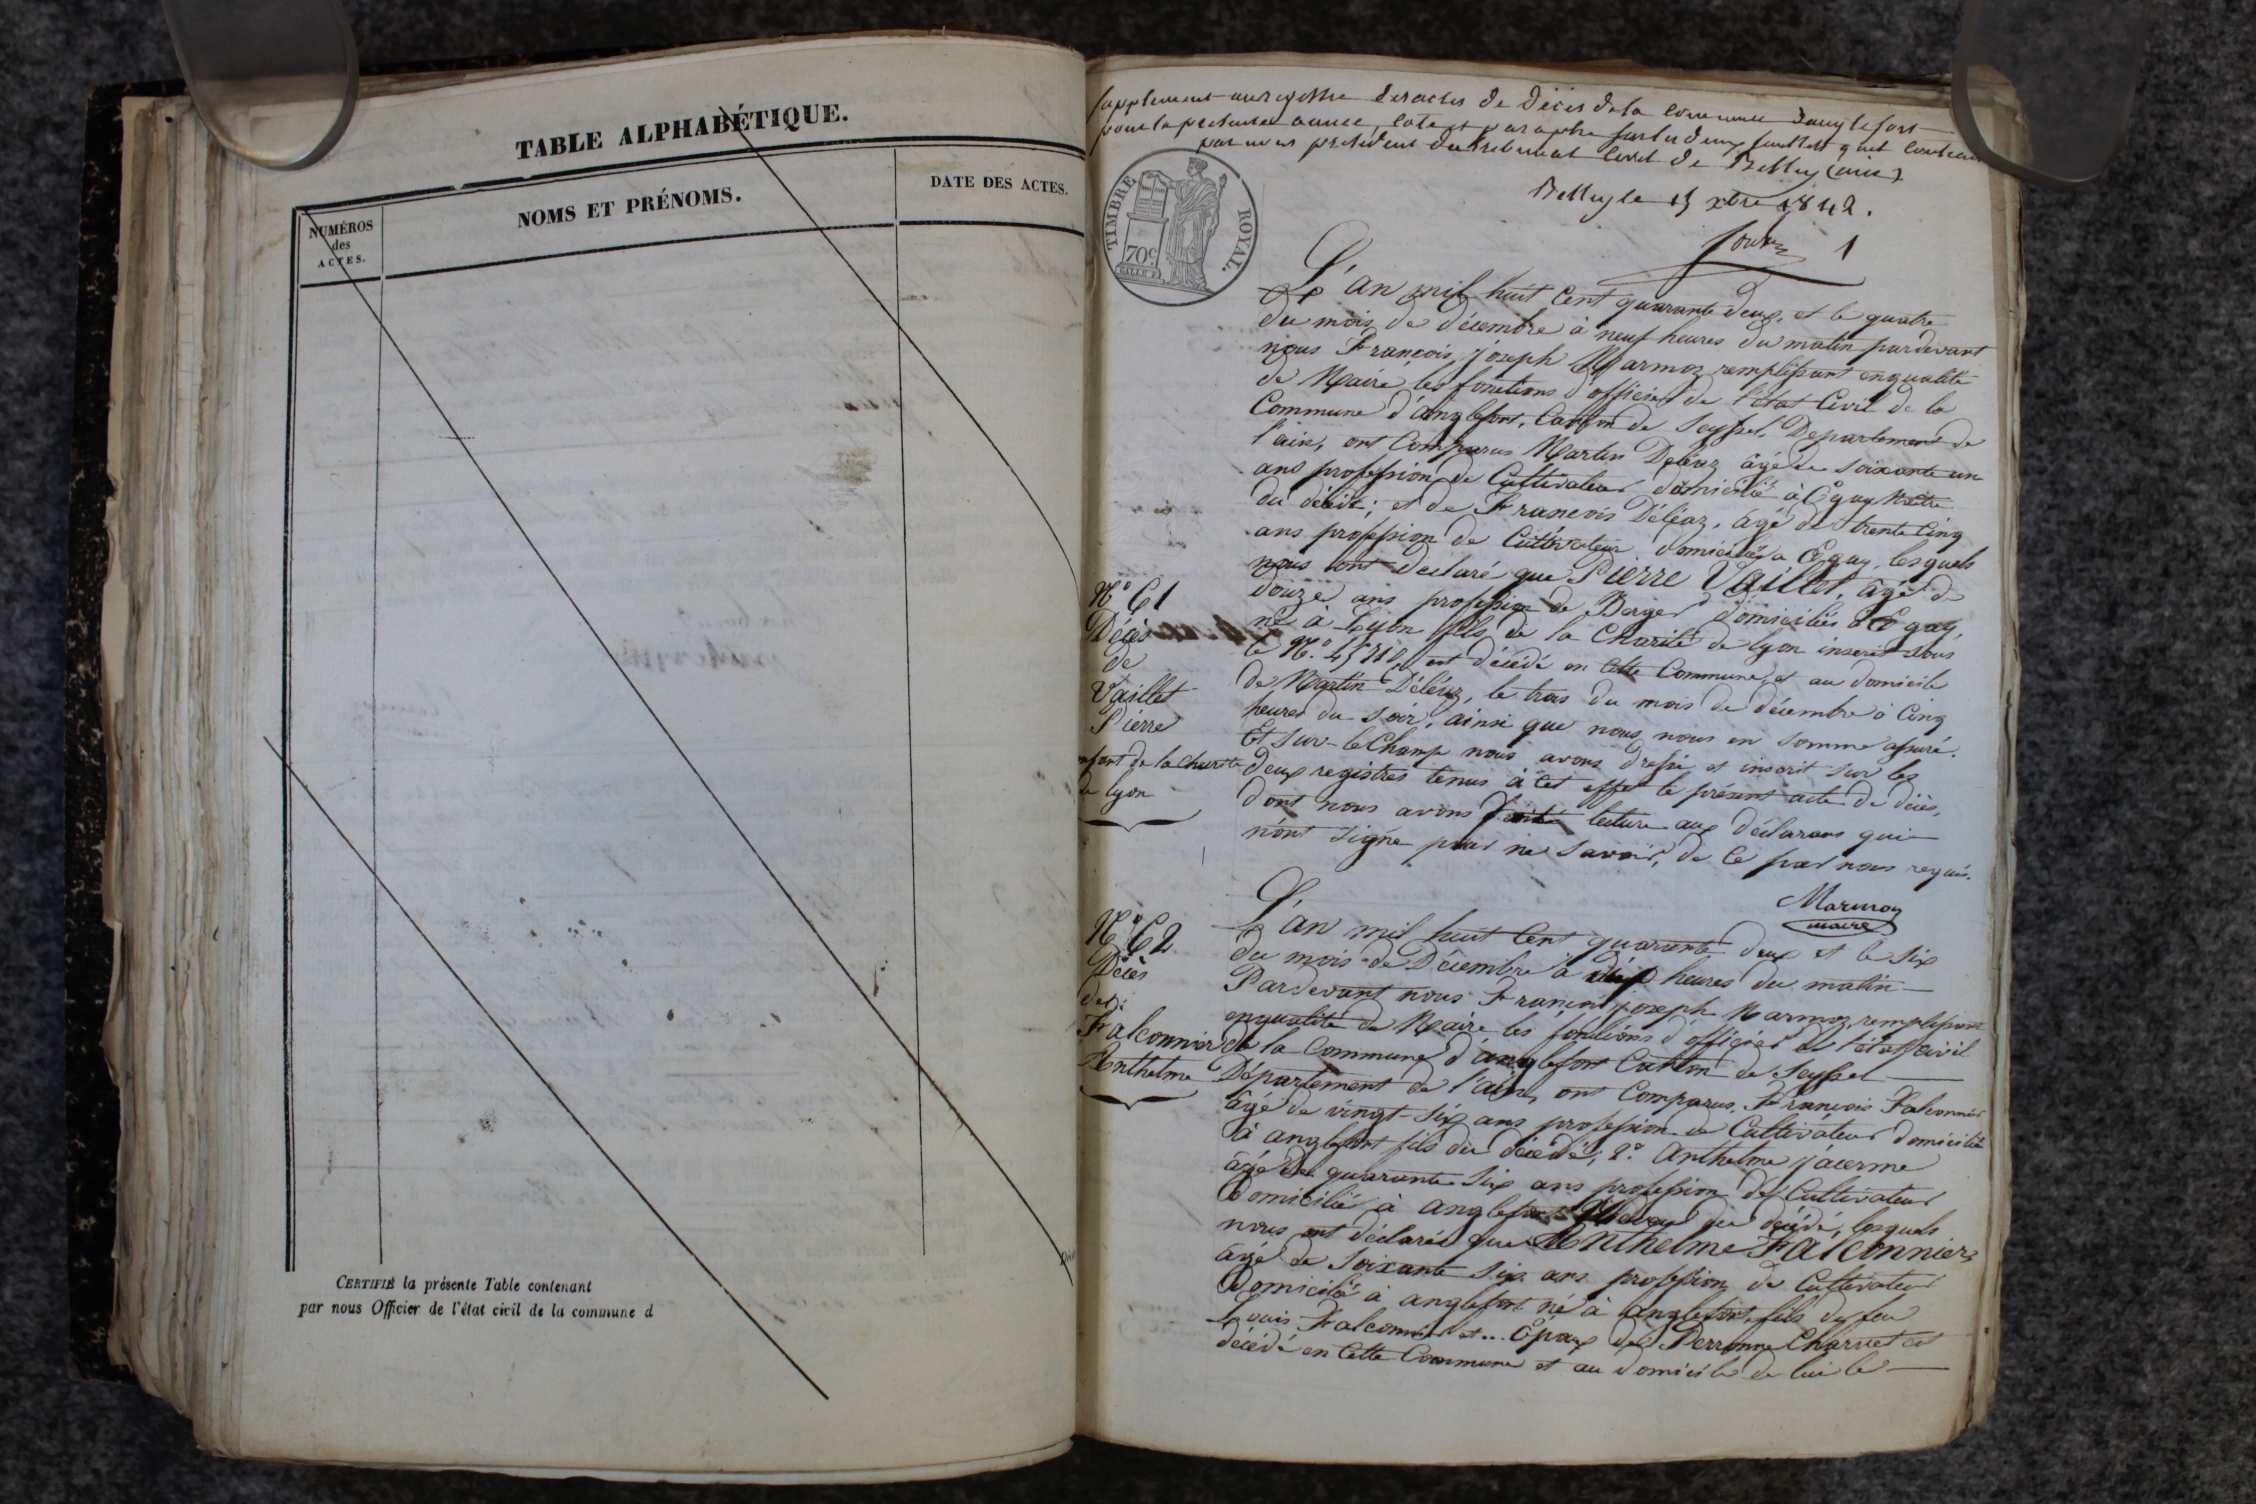 TABLE ALPHABÉTIQUE.
NUMÉROS
des
ACTES.
NOMS ET PRÉNOMS.
DATE DES ACTES.
CERTIFIÉ la présente Table contenant
par nous Officier de l'état civil de la commune d
supplement au registre des actes de Décés de la commune danglefort
pour la présente année, coté et paraphé sur les deux feuillets quil contient
par nous président du tribunal civil de Belley (ain)
Belley le 15 xbre 1842.
1
TIMBRE ROYAL.
70c
L'an mil huit Cent quarante deux, et le quatre
du mois de décembre à neuf heures du matin pardevant
nous François joseph Marmoz remplissant enqualité
de Maire les fonctions d'officier de l'état Civil de la
Commune d'anglefort, Canton de Seyssel, Departement de
l'ain, ont Comparus Martin Deléaz âgé de soixante un
ans profession de Cultivateur domicilié à Égay Maître
du décédé; et de François Déléaz, âgé de trente Cinq
ans profession de Cultivateur domiciliés a Égay, lesquels
nous ont declaré que Pierre Vaillet, âgé de
douze ans profession de Berger domiciliés à Égay,
né à Lyon fils de la Charité de lyon inscrit sous
le N.o est décédé en cette Commune et au domicile
de Martin Déléaz, le trois du mois de décembre à Cinq
heures du soir, ainsi que nous nous en somme assuré.
Et sur-le Champ nous avons dressé et inscrit sur les
deux registres tenus à cet effet le présent acte de décès,
dont nous avons fait lecture aux déclarans qui
n'ont signé pour ne savoir, de ce par nous requis.
Marmoz
maire
N.o 61
Décès
de
Vaillet
Pierre
enfant de la charité
de lyon
N.o 62
Décès
de
Falconnier
Anthelme
L'an mil huit Cent quarante deux et le six
du mois de Décembre à dix heures du matin
Pardevant nous François joseph Marmoz, remplissant
enqualité de Maire les fonctions d'officier de l'état civil
de la Commune d'anglefort Canton de Seyssel
Département de l'ain, ont Comparus, François Falconnier
âgé de vingt-six ans profession de Cultivateur domicilié
à anglefort fils du décédé; 2.o Anthelme jacerme
âgé de quarante six ans profession de Cultivateur
domicilié à anglefort du décédé, lesquels
nous ont déclarés que Anthelme Falconnier
âgé de soixante six ans profession de Cultivateur
domicilié à anglefort né à anglefort, fils de feu
Louis Falconnier et... Époux de Perronne Charvet est
décédé en Cette Commune et au domicile de lui le